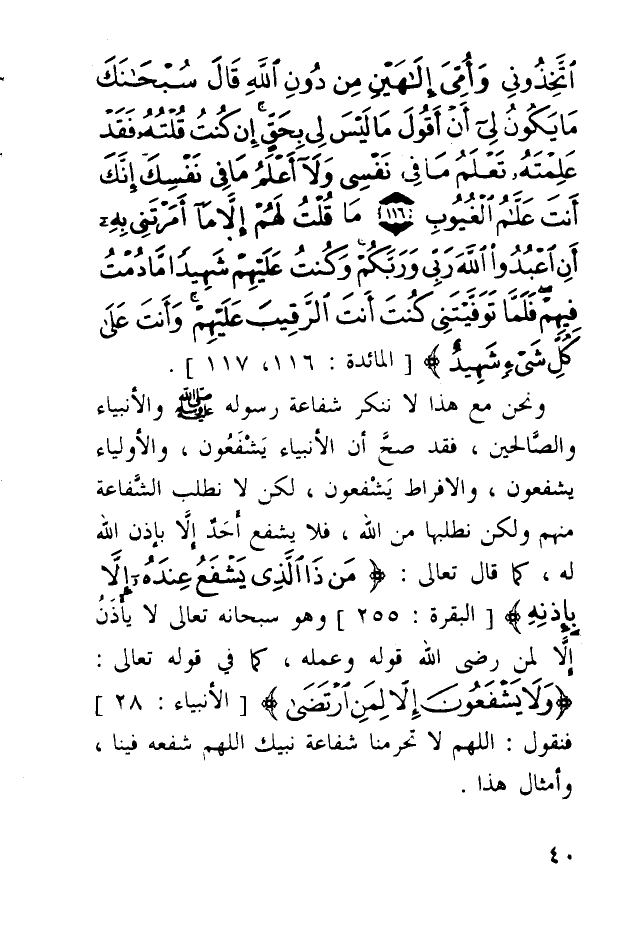 ٱتَّخِذُونِي وَأُمِّىَ إِلَٰهَيۡنِ مِن دُونِ ٱللَّهِ قَالَ سُبۡحَٰنَكَ
مَا يَكُونُ لِىٓ أَنۡ أَقُولَ مَا لَيۡسَ لِي بِحَقٍّۚ إِن كُنتُ قُلۡتُهُۥ فَقَدۡ
عَلِمۡتَهُۥ تَعۡلَمُ مَا فِى نَفۡسِى وَلَآ أَعۡلَمُ مَا فِى نَفۡسِكَۚ إِنَّكَ
أَنتَ عَلَّٰمُ ٱلۡغُيُوبِ ١١٦ مَا قُلۡتُ لَهُمۡ إِلَّا مَآ أَمَرۡتَنِى بِهِۦٓ
أَنِ ٱعۡبُدُوا۟ ٱللَّهَ رَبِّى وَرَبَّكُمۡۚ وَكُنتُ عَلَيۡهِمۡ شَهِيدًا مَّا دُمۡتُ
فِيهِمۡۖ فَلَمَّا تَوَفَّيۡتَنِى كُنتَ أَنتَ ٱلرَّقِيبَ عَلَيۡهِمۡۚ وَأَنتَ عَلَىٰ
كُلِّ شَىۡءٍ شَهِيدٌ ﴾ [ المائدة : ١١٦، ١١٧ ] .
ونحن مع هذا لا ننكر شفاعة رسوله ﷺ والأنبياء
والصَّالحين ، فقد صحَّ أن الأنبياء يَشْفَعُون ، والأولياء
يشفعون ، والافراط يَشْفعون ، لكن لا نطلب الشَّفاعة
منهم ولكن نطلبها من الله ، فلا يشفع أَحَدٌ إلَّا بإذن الله
له ، كما قال تعالى : ﴿ مَن ذَا ٱلَّذِى يَشۡفَعُ عِندَهُۥٓ إِلَّا
بِإِذۡنِهِۦ ﴾ [ البقرة : ٢٥٥ ] وهو سبحانه تعالى لا يأْذَنُ
إلَّا لمن رضى الله قوله وعمله ، كما في قوله تعالى :
﴿ وَلَا يَشۡفَعُونَ إِلَّا لِمَنِ ٱرۡتَضَىٰ ﴾ [ الأنبياء : ٢٨ ]
فنقول : اللهم لا تحرمنا شفاعة نبيك اللهم شفعه فينا ،
وأمثال هذا .
٤٠